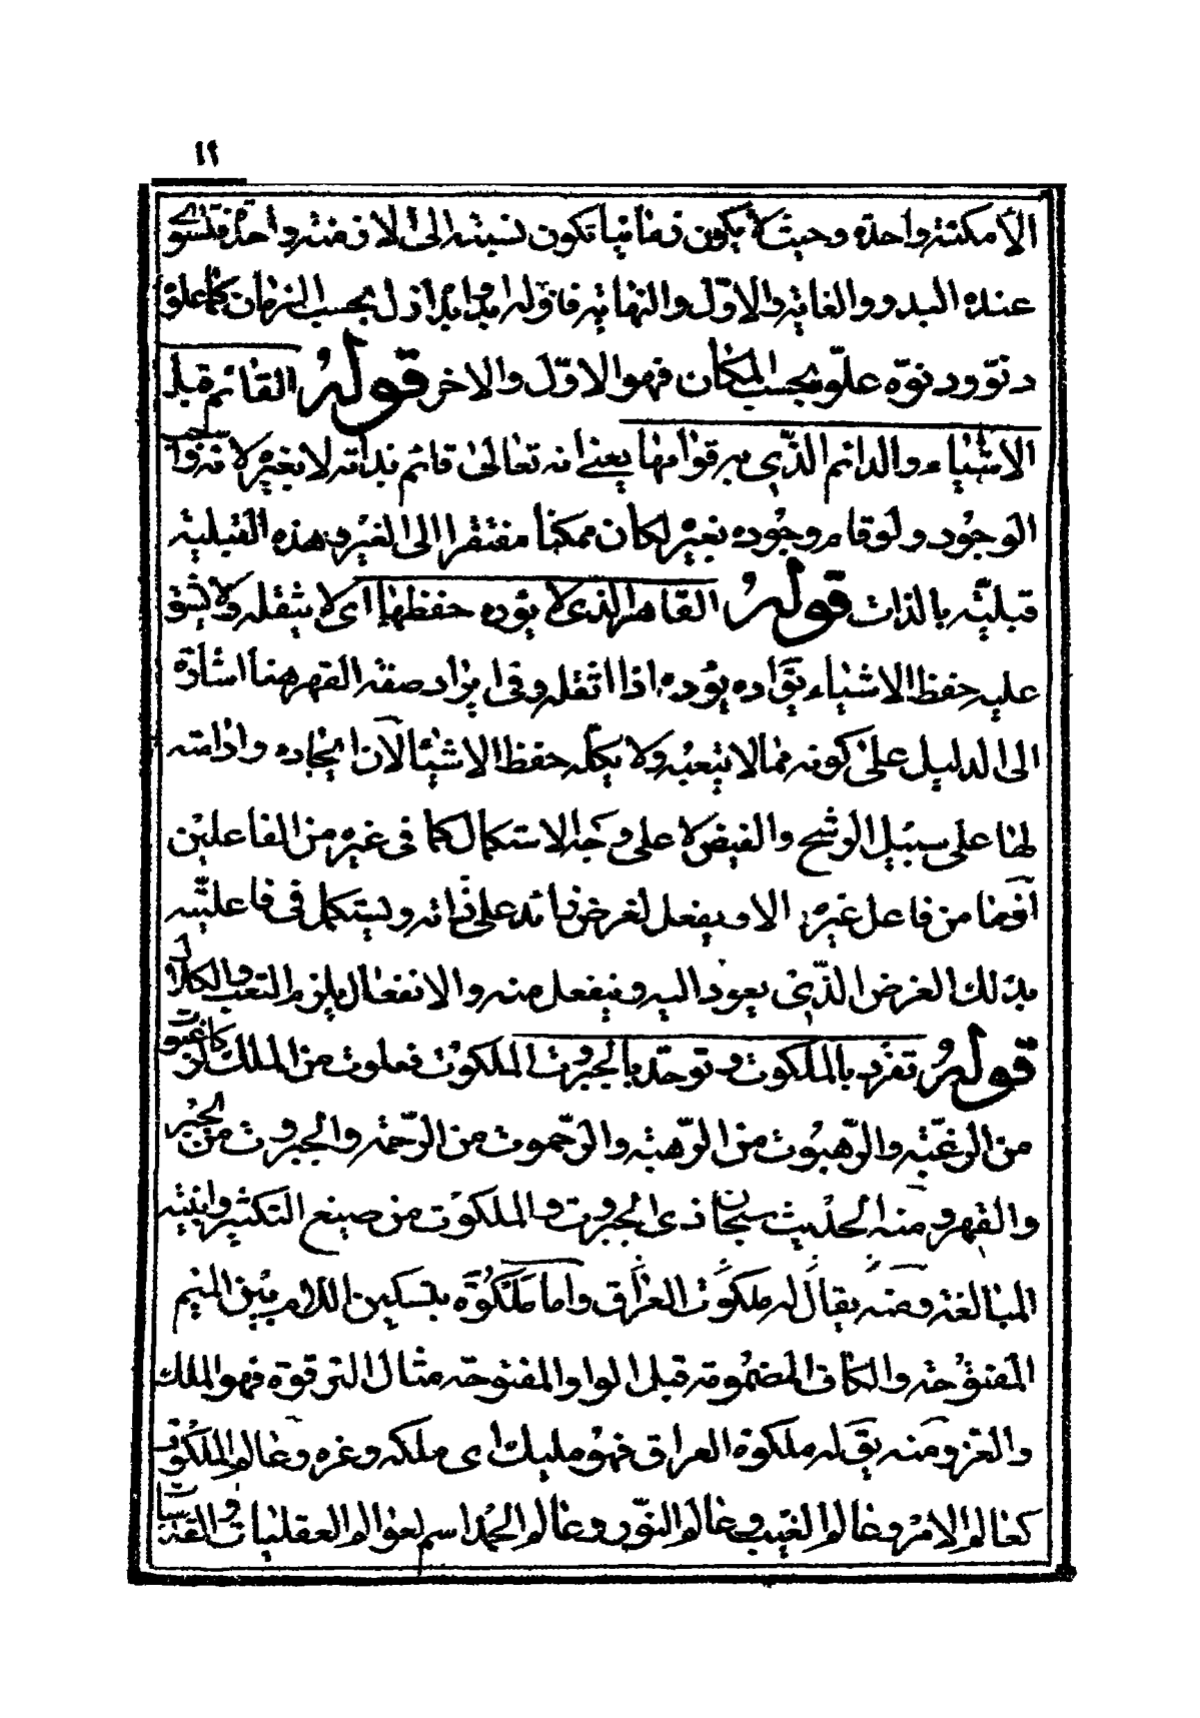 ١٢
الامكنة واحدة وحيث لا يكون زمانيا تكون نسبته الى الازمنة واحدة فتستوى
عنده البدو والغاية والاول والنهاية فاوله ابد وابده ازل بحسب الزمان كما علوه
دنوه ودنوه علوه بحسب المكان فهو الاول والاخر قوله القائم قبل
الاشياء والدائم الذى به قوامها يعنى انه تعالى قائم بذاته لا بغيره لانه واجب
الوجود ولو قام وجوده بغيره لكان ممكنا مفتقرا الى الغير وهذه القبلية
قبلية بالذات قوله القاهر الذى لا يؤده حفظها اى لا يثقله ولا يشق
عليه حفظ الاشياء يق اده يؤده اذا اثقله وفى ايراد صفة القهر هنا اشارة
الى الدليل على كونه مما لا يتعبه ولا يكله حفظ الاشياء لان ايجاده وادامته
لها على سبيل الوشح والفيض لا على وجه الاستكمال كما فى غيره من الفاعلين
اذ ما من فاعل غيره الا ويفعل لغرض زائد على ذاته ويستكمل فى فاعليته
بذلك الغرض الذى يعود اليه وينفعل منه والانفعال يلزم التعب والكلال
قوله تفرد بالملكوت وتوحد بالجبروت الملكوت فعلوت من الملك كالرغبوت
من الرغبة والرهبوت من الرهبة والرحموت من الرحمة والجبروت من الجبر
والقهر ومنه الحديث سبحان ذى الجبروت والملكوت من صيغ التكثير وابنية
المبالغة ومنه يقال له ملكوت العراق واما ملكوة بتسكين اللام بين الميم
المفتوحة والكاف المضمومة قبل الواو المفتوحة مثال الترقوة فهو الملك
والعز ومنه يق له ملكوة العراق فهو مليك اى ملكه وعزه وعالم الملكوت
كعالم الامر وعالم الغيب وعالم النور وعالم الحمد اسم لعوالم العقليات والقدسيات